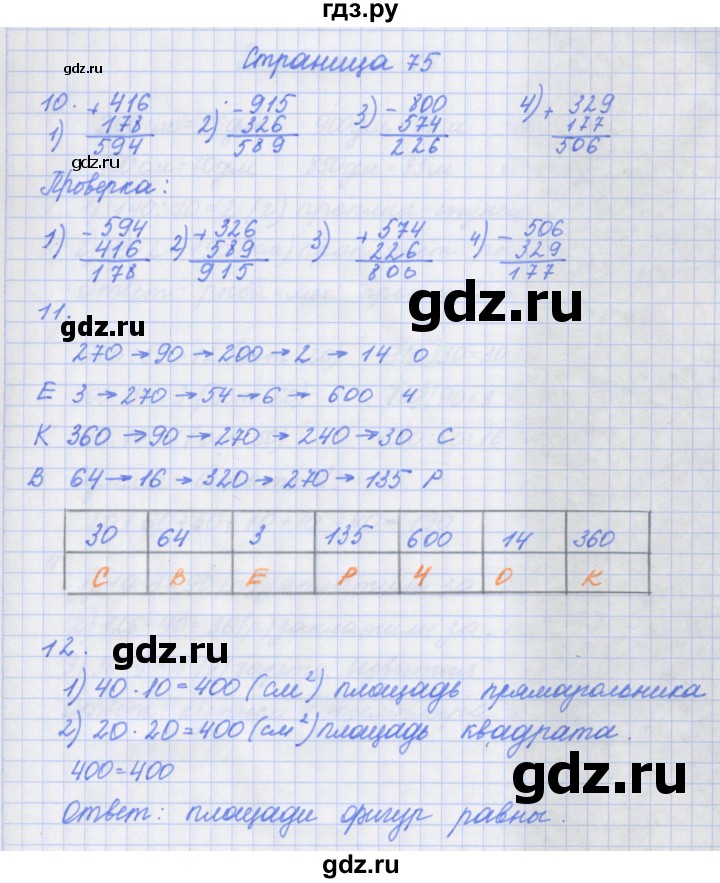 гдз.ру
Страница 75
gdz.ru
10.
1) + 416 178 594 2) - 915 326 589 3) - 800 574 226 4) + 329 177 506
Проверка:
1) - 594 416 178 2) + 326 589 915 3) + 574 226 800 4) - 506 329 177
gdz.ru
11.
gdz.ru
270 → 90 → 200 → 2 → 14 О
Е 3 → 270 → 54 → 6 → 600 Ч
К 360 → 90 → 270 → 240 → 30 С
В 64 → 16 → 320 → 270 → 135 Р
30 64 3 135 600 14 360
С В Е Р Ч О К
12.
gdz.ru
1) 40 · 10 = 400 (см²) площадь прямоугольника
2) 20 · 20 = 400 (см²) площадь квадрата.
400 = 400
gdz.ru
Ответ: площади фигур равны.
gdz.ru